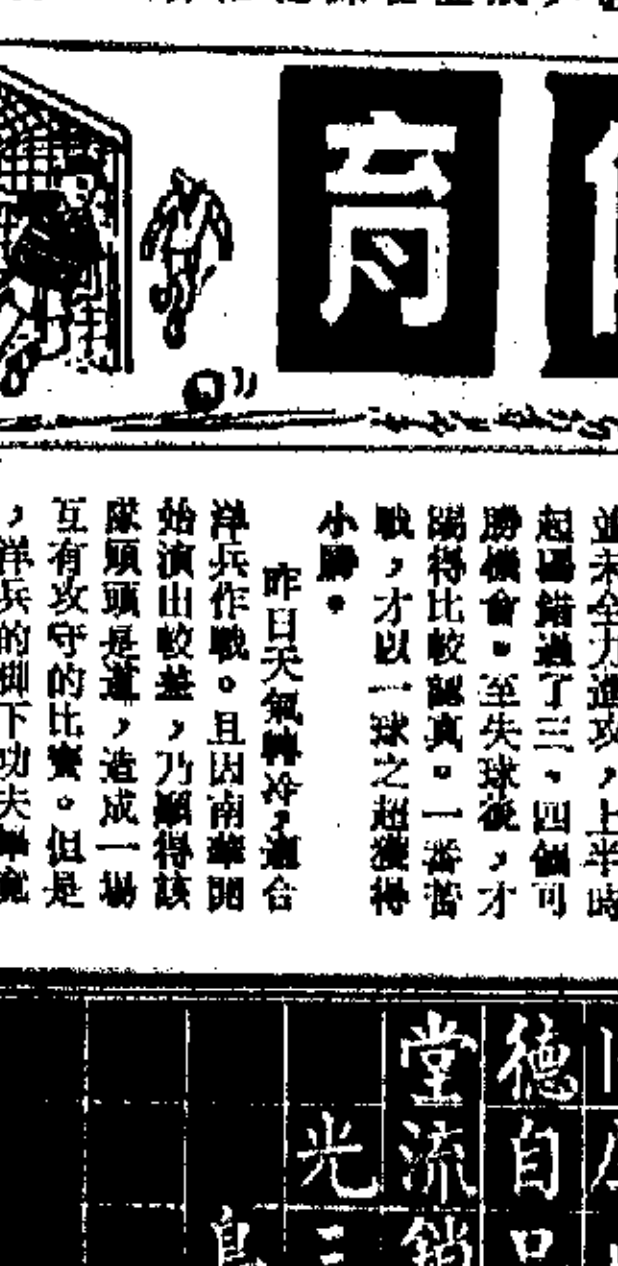 育
並未全力進攻，上半時
起碼錯過了三、四個可
勝機會。至失球後，才
踢得比較認真。一番苦
戰，才以一球之超獲得
小勝。
昨日天氣轉冷，適合
洋兵作戰。且因南華開
始演出較差，乃顯得該
隊頭頭是道，造成一場
互有攻守的比賽。但是
，洋兵的脚下功夫畢竟
德自口
堂流銷
光三